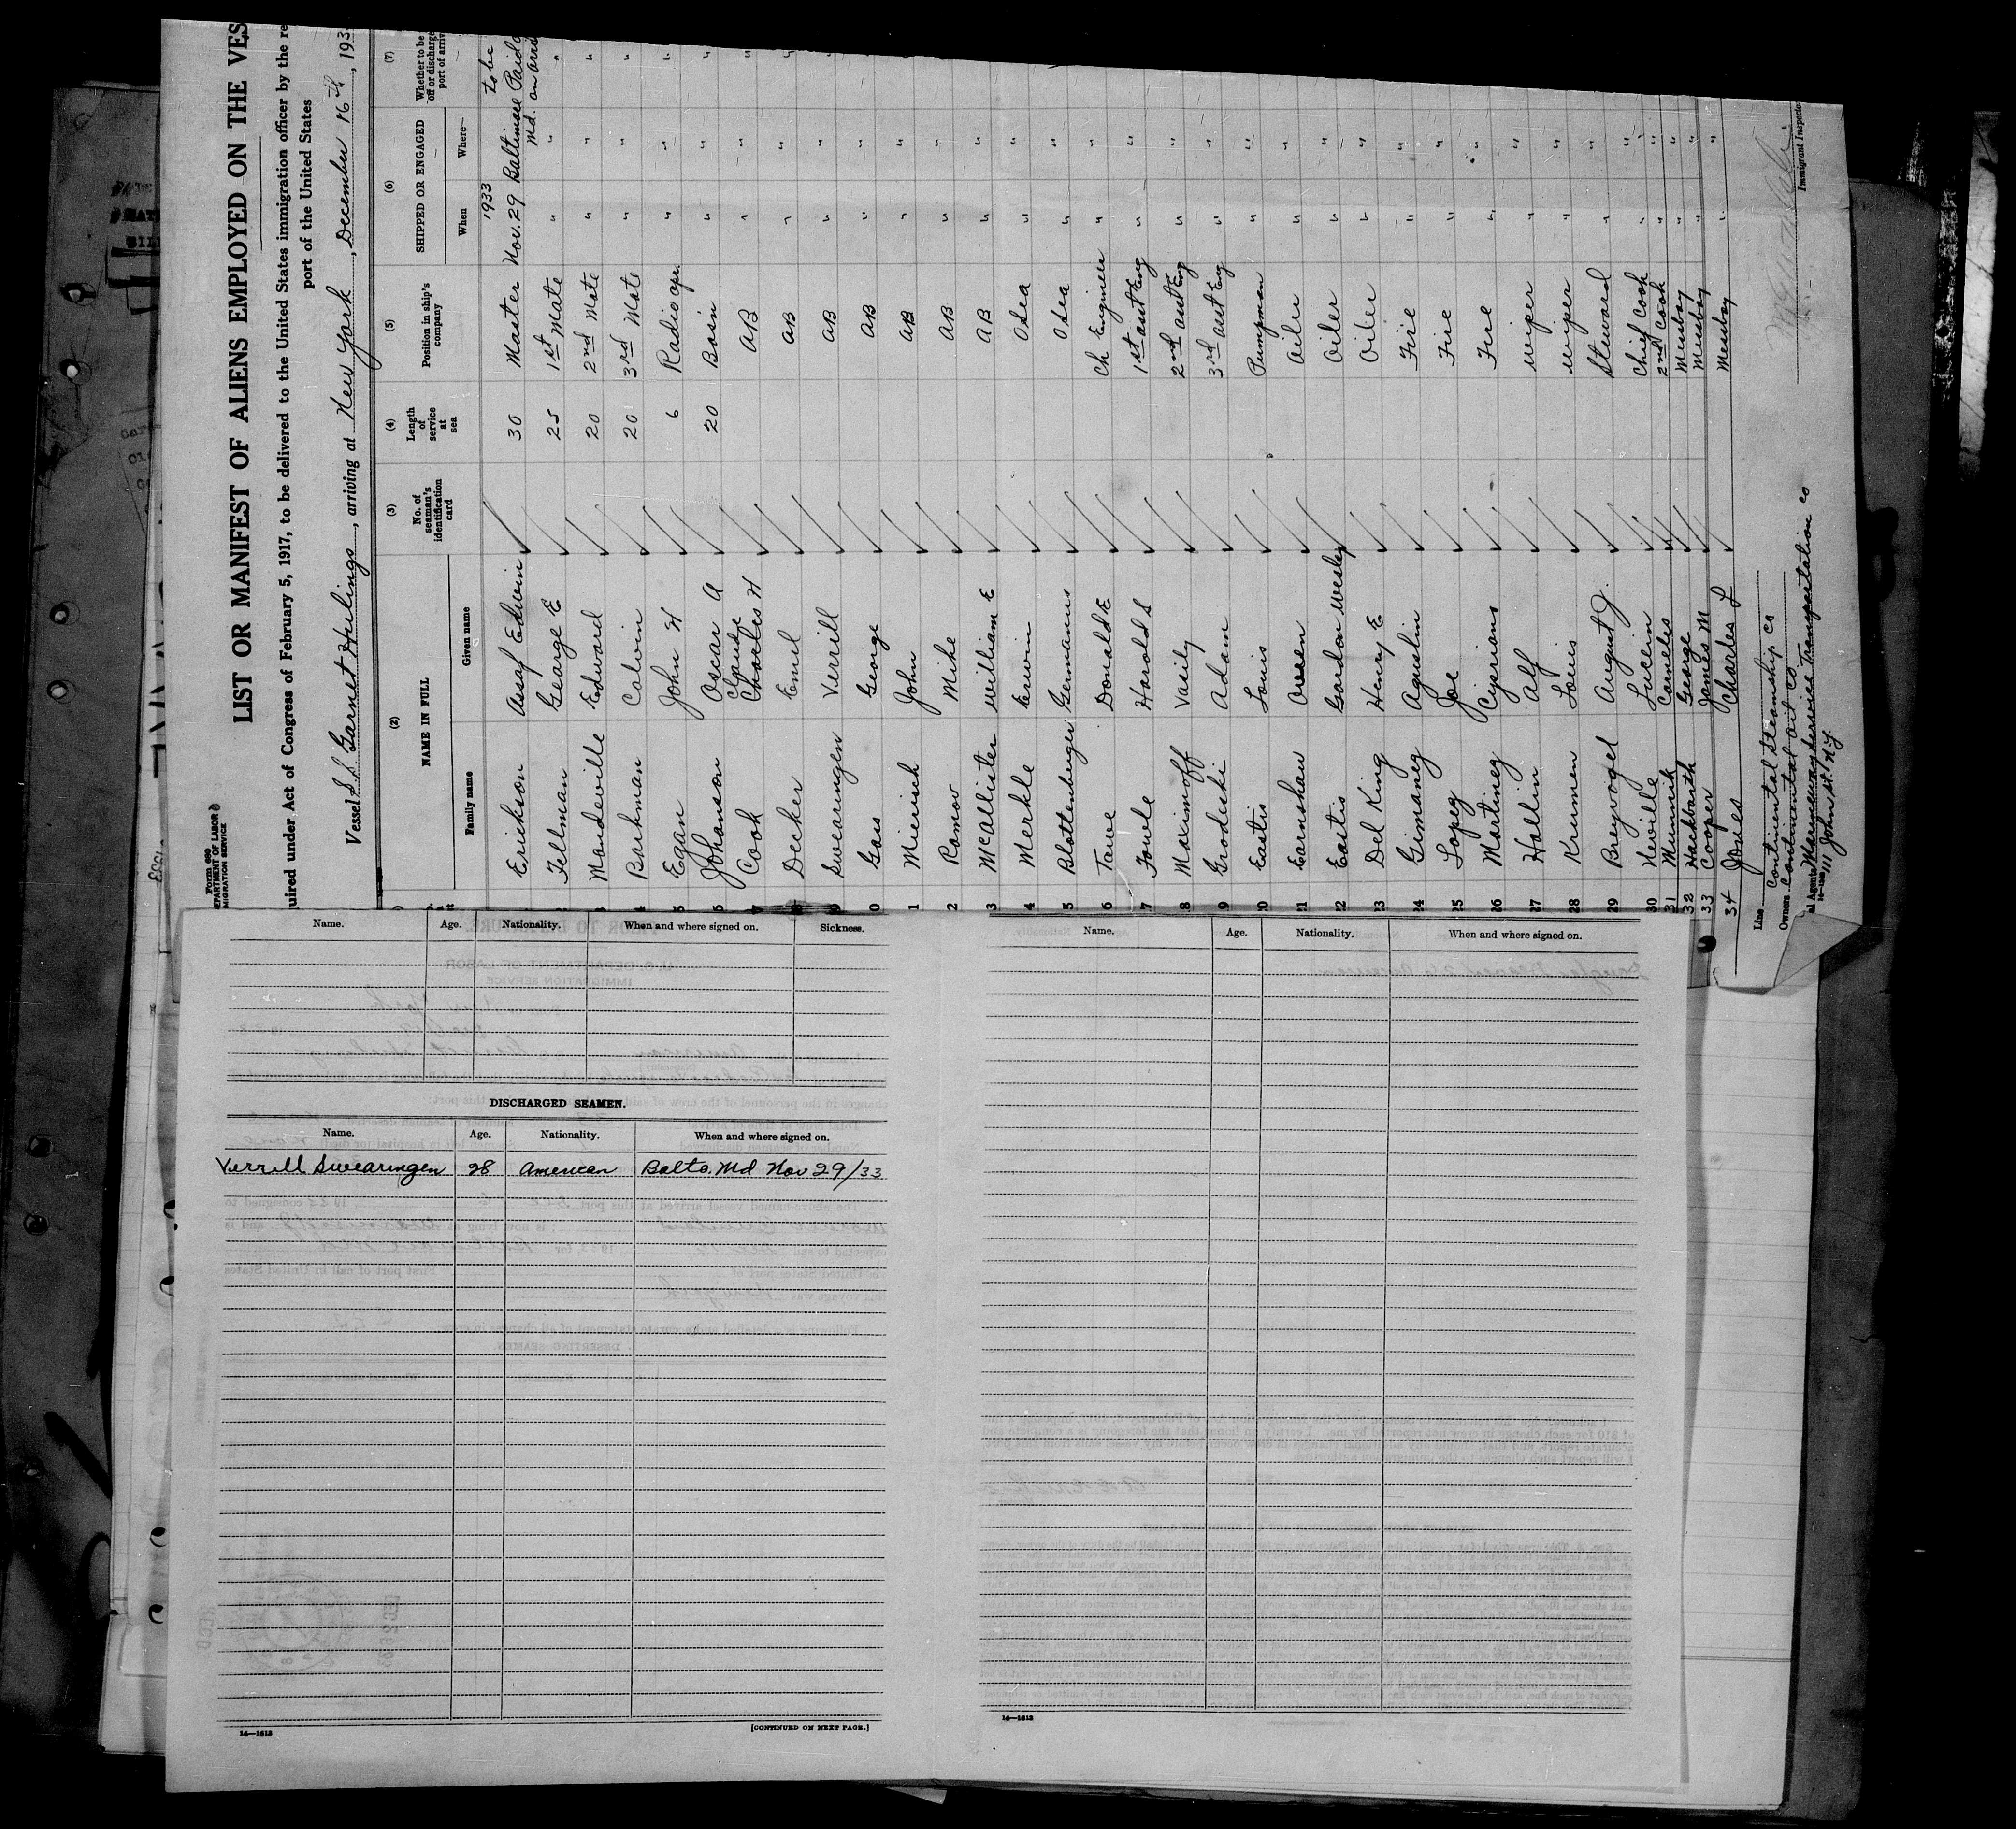 Form 680
LIST OR MANIFEST OF ALIENS EMPLOYED ON THE VES
quired under Act of Congress of February 5, 1917, to be delivered to the United States immigration officer by the re
port of the United States
Vessel S.S. Garnet Hulings, arriving at New York, December 16th, 193
(2) (3) (4) (5) (6) (7)
NAME IN FULL No. of seaman's identification card Length of service at sea Position in ship's company SHIPPED OR ENGAGED Whether to be off or discharge port of arriv
Family name Given name When Where
1933 to be
Erickson Asaf Edwin 30 Master Nov. 29 Baltimore Md. Paid on arri
Fellman George E 25 1st Mate " " "
3 Mandeville Edward 20 2nd Mate " " "
4 Barkman Calvin 20 3rd Mate " " "
5 Egan John W 6 Radio opr. " " "
6 Johanson Oscar A 20 Bosn " " "
7 Cook Claude Charles H AB " " "
8 Decker Emil AB " " "
9 Swearingen Verrill AB " " "
0 Gais George AB " " "
1 Mierisch John AB " " "
2 Ramos Mike AB " " "
3 McAllister William E AB " " "
4 Merkle Erwin O Sea " " "
5 Blattenberger Germanus O Sea " " "
6 Tawe Donald E Ch Engineer " " "
17 Fowle Harold S 1st asst Eng " " "
18 Maximoff Vasily 2nd asst Eng " "
19 Grodeski Adam 3rd asst Eng " "
20 Eastis Louis Pumpman " "
21 Earnshaw Owen Oiler " "
22 Eastis Gordon Wesley Oiler " "
23 Del King Henry E Oiler " "
24 Gimanez Agustin Fire " "
25 Lopez Joe Fire " "
26 Martinez Cipriano Fire " "
27 Hallin Alf Wiper " "
28 Krumen Louis Wiper " "
29 Breyvogel August J. Steward " "
30 Neville Lucein Chief Cook " "
31 Munnik Cornelis 2nd Cook " "
32 Hackbarth George Messboy " "
33 Cooper James M Messboy " "
34 Jones Charles L Messboy " "
Line Continental Steamship Co
Owners Continental Oil Co
al Agents Marineway Service Transportation Co
111 John St. N.Y.
Immigrant Inspector
Name. Age. Nationality. When and where signed on. Sickness.
DISCHARGED SEAMEN.
Name. Age. Nationality. When and where signed on.
Verrell Swearingen 28 American Balto. Md Nov 29/33
14—1613 [CONTINUED ON NEXT PAGE.]
Name. Age. Nationality. When and where signed on.
14—1613